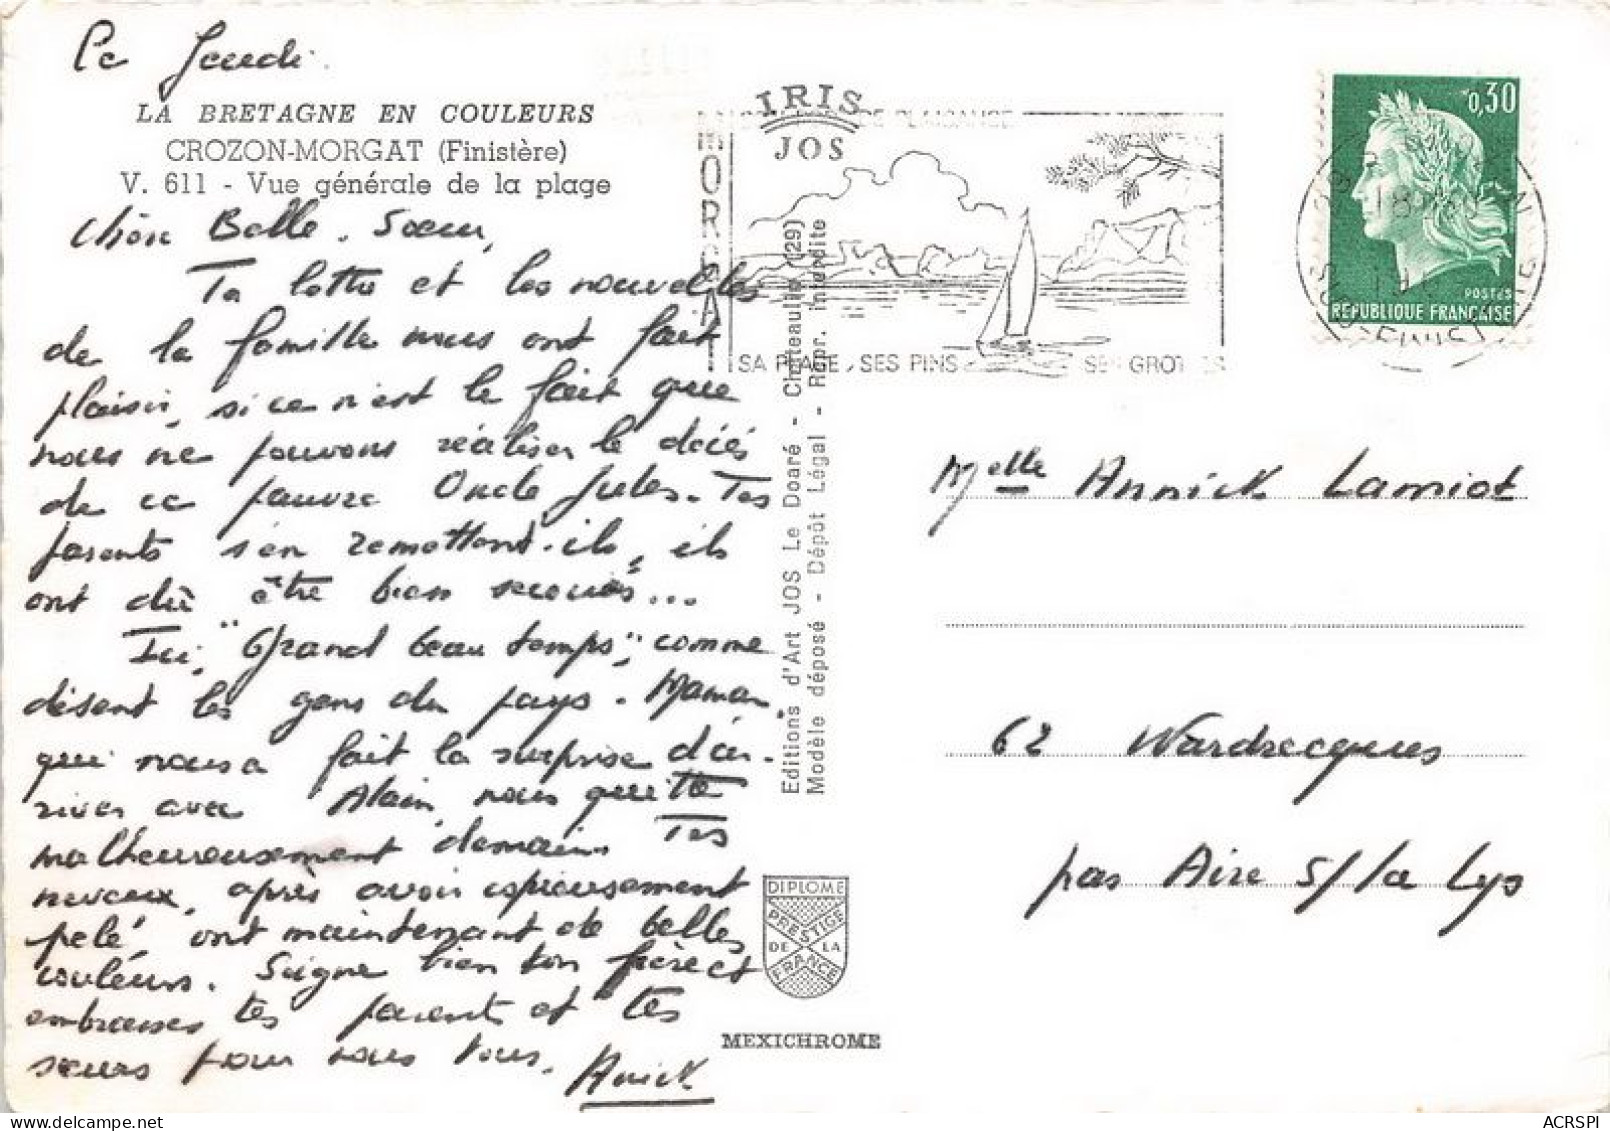 Le Jeudi.
LA BRETAGNE EN COULEURS
CROZON-MORGAT (Finistère)
V. 611 - Vue générale de la plage
Chère Belle-Soeur,
Ta lettre et les nouvelles
de la famille nous ont fait
plaisir, si ce n'est le fait que
nous ne pouvons réaliser le décès
de ce pauvre Oncle Jules. Tes
parents s'en remettent-ils, ils
ont dû être bien secoués...
Ici, "Grand beau temps", comme
disent les gens du pays. Maman,
qui nous a fait la surprise d'ar-
river avec Alain, nous quitte
malheureusement demain. Tes
neveux, après avoir copieusement
pelé, ont maintenant de belles
couleurs. Soigne bien ton frère et
embrasses tes parents et tes
soeurs pour nous tous.
Anick
IRIS
JOS
MORGAT
DE PLAISANCE
SA PLAGE, SES PINS
SES GROTTES
Editions d'Art JOS Le Doaré - Chateaulin (29)
Modèle déposé - Dépôt Légal - Repr. interdite
DIPLOME
PRESTIGE
DE LA
FRANCE
MEXICHROME
0,30
POSTES
REPUBLIQUE FRANÇAISE
Melle Annick Lamiot
62 Wardrecques
par Aire s/la Lys
ACRSPI